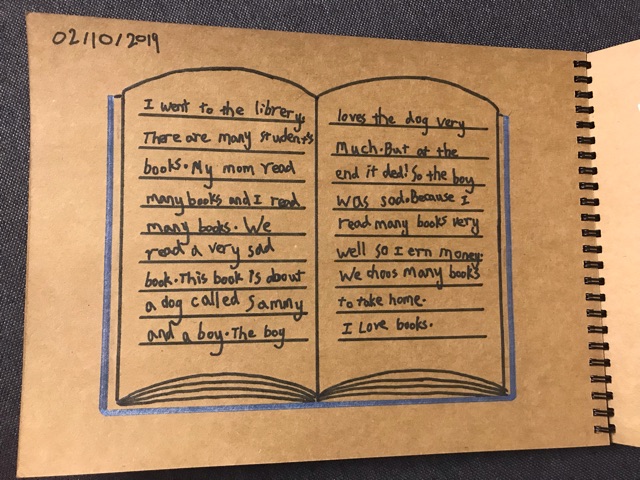 02/10/2019
I went to the library.
There are many students
books. My mom read
many books and I read
many books. We
read a very sad
book. This book is about
a dog called Sammy
and a boy. The boy
loves the dog very
Much. But at the
end it ded! So the boy
was sad. Because I
read many books very
well so I ern money.
We choos many books
to take home.
I Love books.